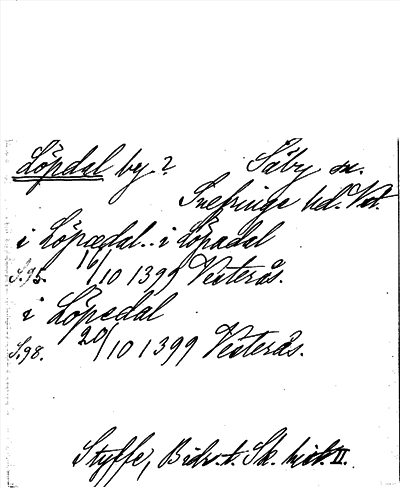 Löpdal by? Säby sn.
Snefringe hd. Vst.
i Löpædal.. i Löpadal
S. 95. 16/10 1399 Vesterås.
i Löpedal
S. 98. 20/10 1399 Vesterås.
Styffe, Bidr. t. Sk. hist. II.